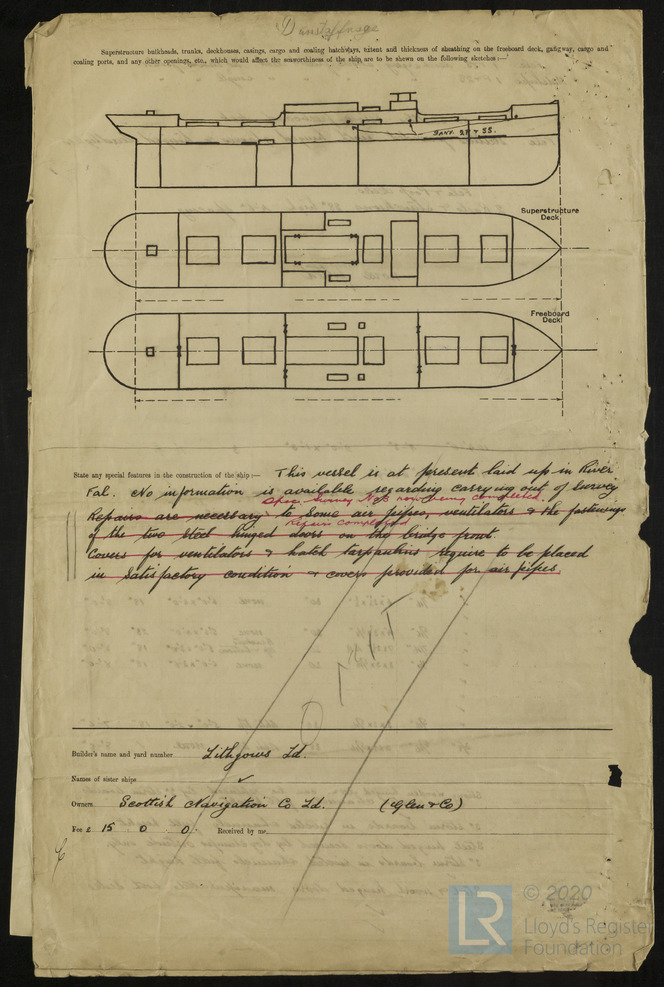 Dunstaffnage
Superstructure bulkheads, trunks, deckhouses, casings, cargo and coaling hatchways, extent and thickness of sheathing on the freeboard deck, gangway, cargo and
coaling ports, and any other openings, etc., which would affect the seaworthiness of the ship, are to be shewn on the following sketches :—
Superstructure
Deck
Freeboard
Deck
State any special features in the construction of the ship :— This vessel is at present laid up in River
Fal. No information is available regarding carrying out of Survey
Spec. Survey No 3 now being completed.
Repairs are necessary to some air pipes, ventilators & the fastenings
Repairs completed
of the two steel hinged doors on the bridge front.
Covers for ventilators & hatch tarpaulins require to be placed
in satisfactory condition & covers provided for air pipes.
Builder's name and yard number Lithgows Ld.
Names of sister ships
Owners Scottish Navigation Co Ld. (Glen & Co)
Fee £ 15 0 0. Received by me,
LR
© 2020
Lloyd's Register
Foundation